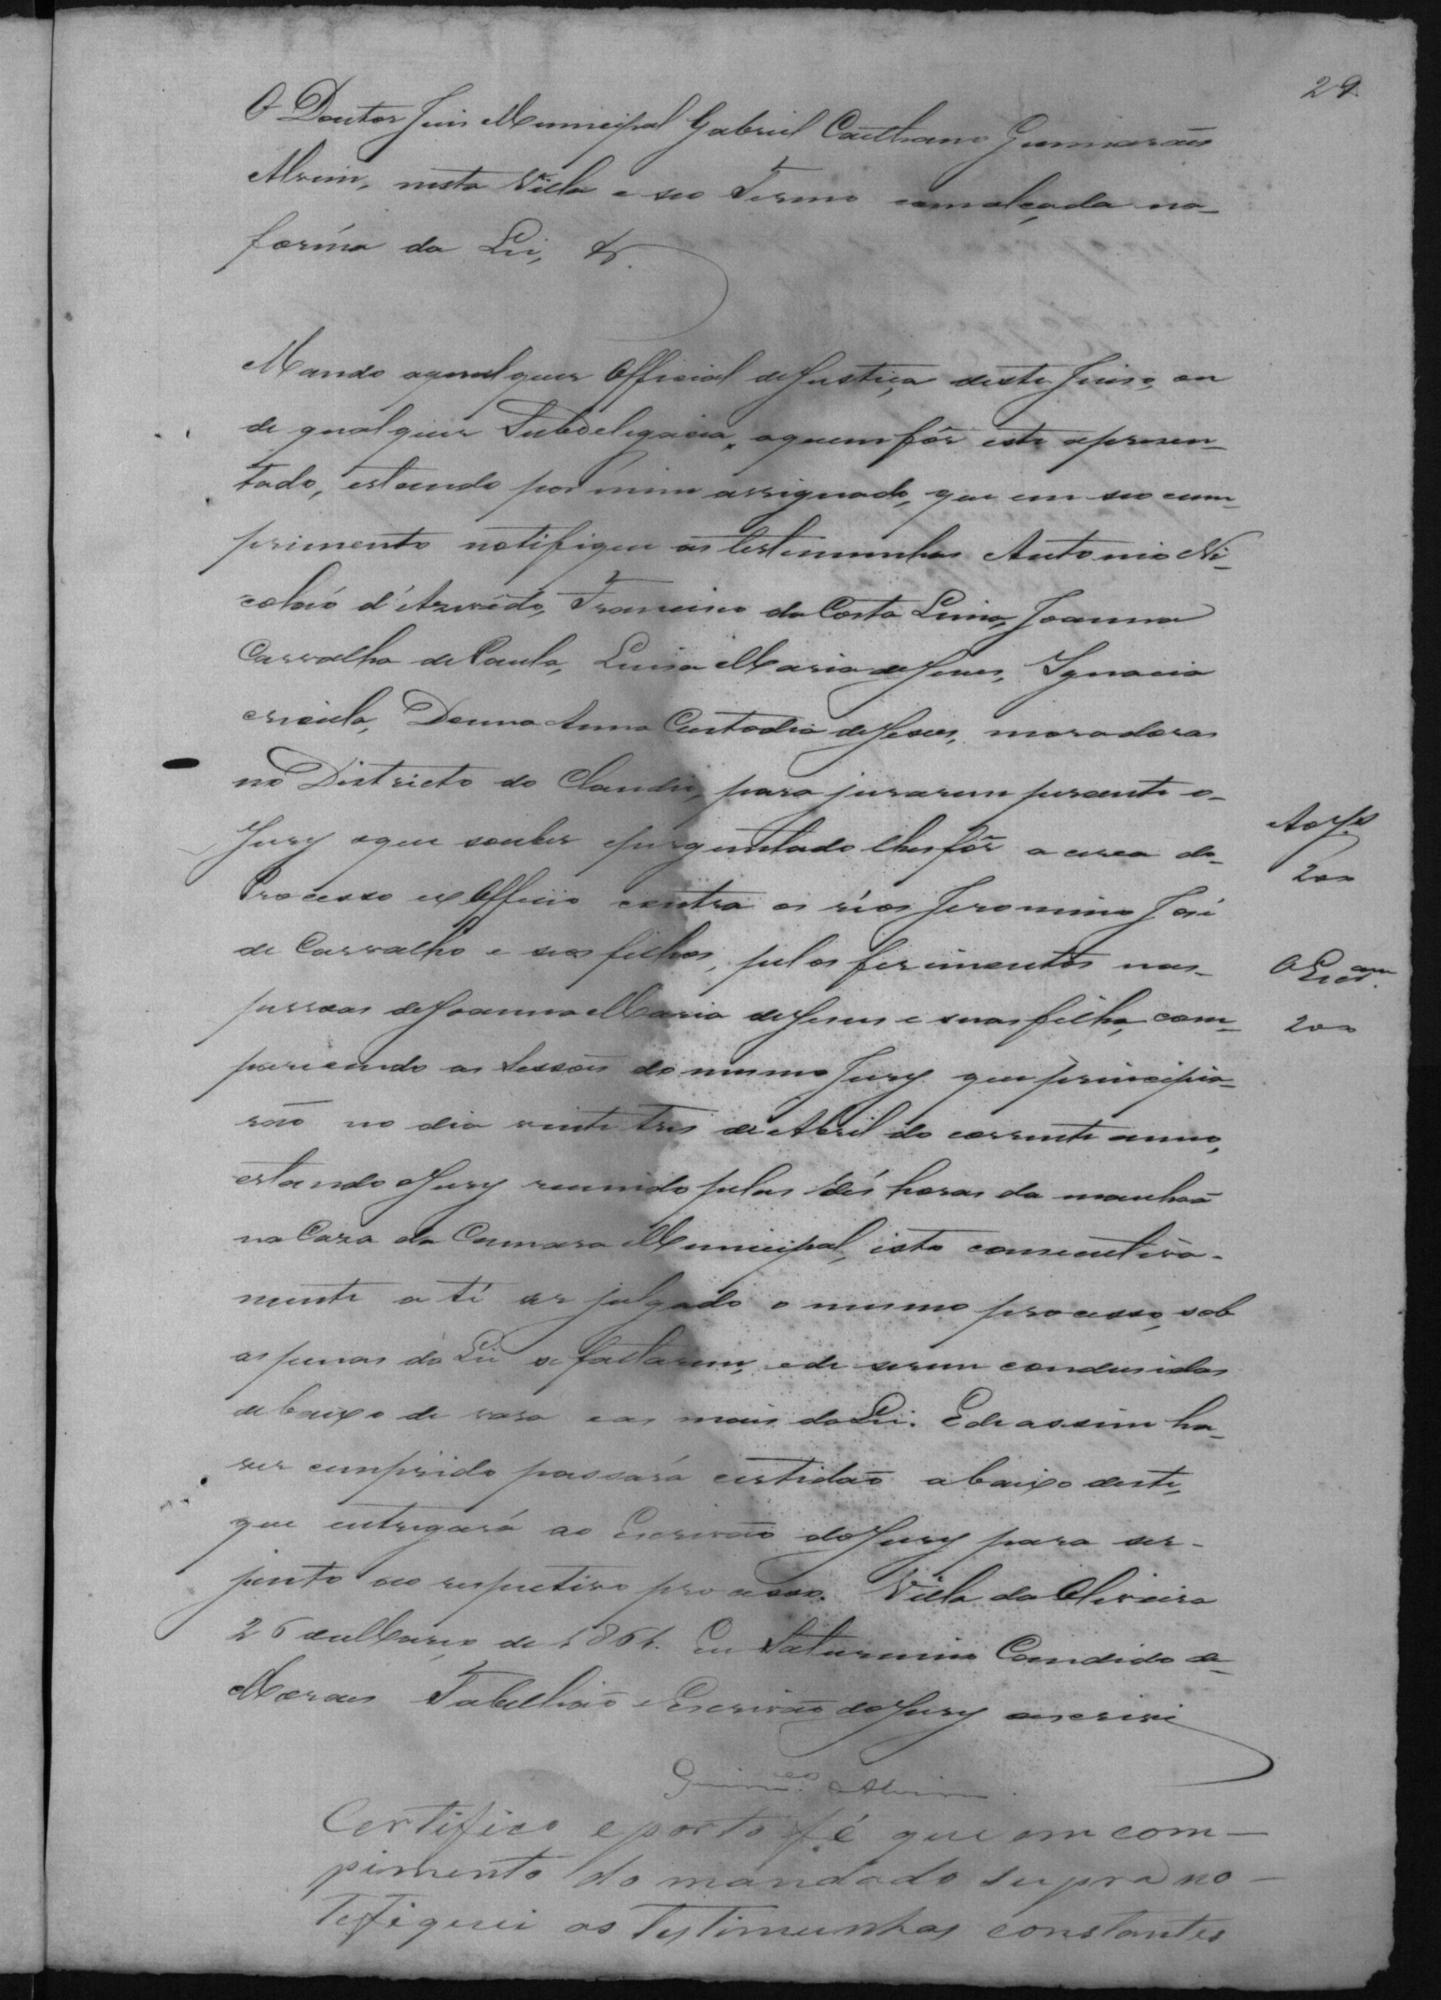 29.
O Doutor Juis Municipal Gabriel Caethano Guimaraẽs
Alvim, nesta Villa e seo Termo com alçada na
forma da Lei, &.
Mando aqualquer Official deJustiça deste Juiso, ou
de qualquer Subdelegacia, aquem fôr este apresen-
tado, estando por mim assignado, que em seo cum-
primento notifique as testemunhas Antonio Ni-
coláo d'Azevêdo, Francisco da Costa Lima, Joanna
Carvalha de Paula, Luisa Maria deJesus, Ignacia
crioula, Donna Anna Custodia deJesus, moradoras
no Districto do Claudio, para jurarem perante o
Jury oque souber eperguntado lhes fôr a cerca do
Processo ex Officio contra os réos Jeronimo José
de Carvalho e seos filhos, pelos ferimentos nas
pessoas deJoanna Maria deJesus e suas filha, com-
parecendo as Sessoẽs do mesmo Jury que principia-
rão no dia vinte tres de Abril do corrente anno,
estando oJury reunido pelas dés horas da manhaã
na Caza da Camara Municipal, isto consecutiva-
mente a té ser julgado o mesmo processo, sob
as penas da Lei se faltarem, ede serem condusidas
debaixo de vara eas mais daLei. Edeassim ha-
ver cumprido passará certidaõ abaixo deste,
que entregará ao Escrivaõ doJury para ser
junto ao respectivo processo. Villa da Oliveira
26 deMarço de 1861. Eu Saturnino Candido de
Moraes Tabelliaõ eEscrivaõ doJury oescrivi
Guim.es Alvim
Certifico eporto fé que em com-
pimento do mandado supra no-
tefiquei as Testimunhas constantes
200
O Escr.am
200